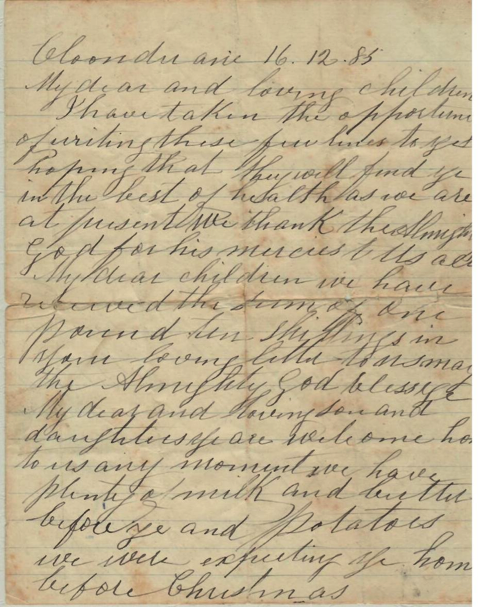 Cloonduane 16.12.85
My dear and loving children
I have taken the opportuni
of writing these few lines to yes
hoping that they will find ye
in the best of health as we are
at present We thank the Almight
God for his mercies to us all
My dear children we have
received the sum of one
pound ten shillings in
your loving letter to us may
the Almighty God bless ye
My dear and loving son and
daughters ye are welcome ho
to us any moment we have
plenty of milk and butter
before ye and Potatoes
we were expecting ye hom
before Christmas